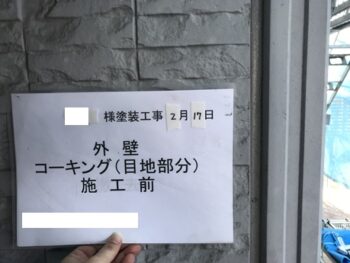 様塗装工事 2月17日
外壁
コーキング(目地部分)
施工前